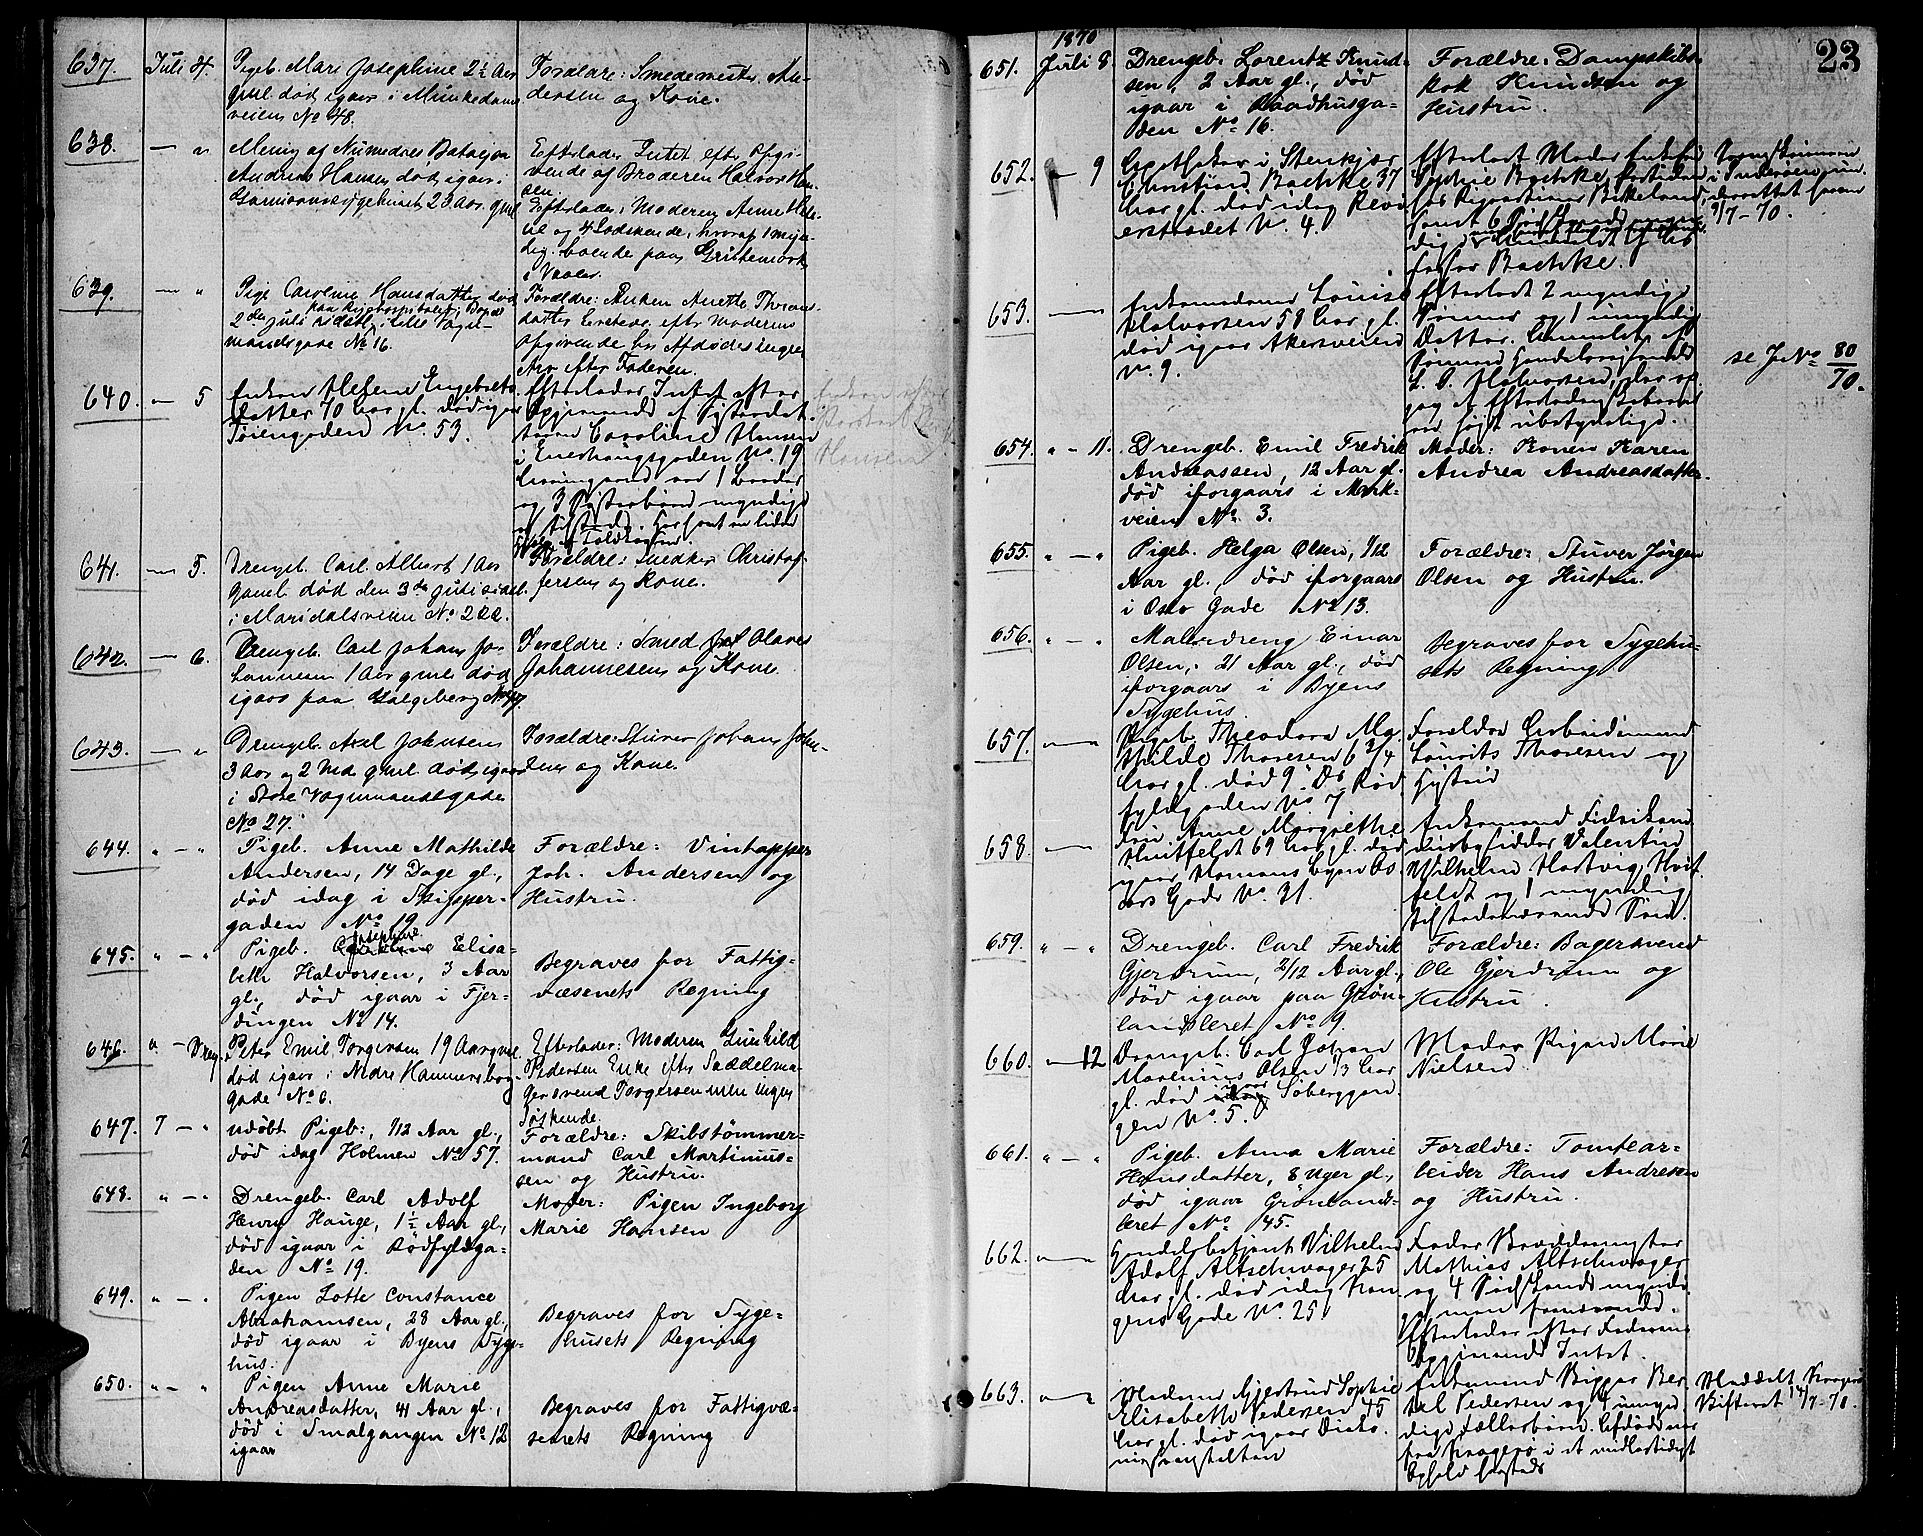 637. Juli 4. Pigeb. Mari Josephine 2½ Aar
gml død igaar i Munkedams
veien No 48.
Forældre: Smedemester An-
dersen og Kone.
638. — " Menig af Numedals Bataljon
Andreas Hansen død igaar i
Garnisonssygehuset 23 Aar gml
Efterlader Intet efter Opgi-
vende af Broderen Halvor Han-
sen.
Efterlader: Moderen Anne
og 4 Sødskende, hvoraf 1 myn-
dig boende paa
i Vaaler.
639. — " Pige Caroline Hansdatter død
paa Rigshospitalet; Boede
2den Juli sidstl. i Lille Vogn-
mandsgade No 16.
Forældre: Enken Anette Thoras-
datter Eneste Arv. efter Moderens
Opgivende har Afdøde ingen
Arv efter Faderen.
640. — 5 Enken Helene Engebrets-
datter 70 Aar gl. død igaar
Tøiengaden No. 53.
Efterlader Intet efter
Opgivende af Søsterdat-
teren Caroline Hansen
i Enerhaugsgaden No. 19
og 3 Søsterbørn myndige
Enken efter
Hansen
641. — 5. Drengeb. Carl Albert 1 Aar
gaml. død den 3de Juli sidstl.
i Maridalsveien No. 222.
Forældre: Snedker Christof-
fersen og Kone.
642. — 6. Drengeb. Carl Johan Jo-
hannesen 1 Aar gml død
igaar paa Galgeberg No 47.
Forældre: Smed Olaves
Johannesen og Kone.
643. — " Drengeb. Axel Johnsen
3 Aar og 2 Md gml. død igaar
i Store Vognmandsgade
No 27.
Forældre: Stuver Johan John-
sen og Kone.
644. " — " Pigeb. Anne Mathilde
Andersen, 14 Dage gl.,
død idag i Skipper-
gaden No 19
Forældre: Vintapper
Joh. Andersen og
Hustru.
645. " — " Pigeb. Josephine Elisa-
beth Halvorsen, 3 Aar
gl., død igaar i Fjer-
dingen No 14.
Begraves for Fattig-
væsenets Regning
646. " — Dreng Peter Emil Torgersen 19 Aar gml.
død igaar i Nedre Hammersborg
Gade No 6.
Efterlader: Moderen Gunhild
Pedersen Enke efter Saddelma-
gersvend Torgersen uden ingen
Søskende.
647. 7 — " udøbt Pigeb:, 1/12 Aar gl.,
død idag Holmen No 57.
Forældre: Skibstømmer-
mand Carl Martinius-
sen og Hustru.
648. " — " Drengeb. Carl Adolf
Henry Hauge, 1½ Aar gl.,
død igaar i Rødfyldga-
den No 19.
Moder: Pigen Ingeborg
Marie Hansen
649. " — " Pigen Lotte Constance
Abrahamsen, 28 Aar gl.,
død igaar i Byens Syge-
hus.
Begraves for Syge-
husets Regning
650. " — " Pigen Anne Marie
Andreasdatter, 41 Aar gl.,
død i Smalgangen No 12
igaar
Begraves for Fattigvæ-
senets Regning
23
1870
651. Juli 8. Drengeb. Lorentz Knud-
sen, 2 Aar gl., død
igaar i Raadhusga-
den No 16.
Forældre: Dampskibs-
kok Knudsen og
Hustru.
652. — 9 Apotheker i Stenkjær
Christian Bachke 37
Aar gl. død idag Revi-
erstrædet No. 4.
Efterladt Moder Enkefru
Sophie Bachke,
Farfar Bachke.
9/7-70.
653. — Enkemadame Louise
Halvorsen 58 Aar gl.
død igaar Akersveien
No. 9.
Efterladt 2 myndige
Sønner og 1 umyndig
Datter. Anmeldt af
Sønnen Handelsborger
Halvorsen, der op-
gav at Efterladenskaberne
var høist ubetydelige.
se J No 80/70.
654. " — 11. Drengeb. Emil Fredrik
Andreassen, 12 Aar gl.
død iforgaars i Mark-
veien No 3.
Moder: Konen Karen
Andrea Andreasdatter.
655. " — " Pigeb. Helga Olsen, 1/12
Aar gl., død iforgaars
i Oslo Gade No 13.
Forældre: Stuver Jørgen
Olsen og Hustru.
656. " — " Malerdreng Einar
Olsen, 21 Aar gl., død
iforgaars i Byens
Sygehus.
Begraves for Sygehu-
sets Regning
657. — Pigeb. Theodora Ma-
thilde Thoresen 6 3/4
Aar gl. død 9 Ds Rød-
fyldgaden No 7
Forældre Arbeidsmand
Lauritz Thoresen og
Hustru
658. — Fru Anne Margrethe
Huitfeldt 69 Aar gl. død
igaar Homans Byen Os-
cars Gade No. 31.
Enkemand
Valentin
Wilhelm Hartvig Huit-
feldt og 1 myndig
tilstedeværende Søn.
659. " — " Drengeb. Carl Fredrik
Gjerdrum, 2/12 Aar gl.,
død igaar paa Grøn-
landsleret No 9.
Forældre: Bagersvend
Ole Gjerdrum og
Hustru.
660. — 12 Drengeb. Carl Johan
Marenius Olsen 13 Aar
gl. død igaar Søberggen
gen No. 5.
Moder Pigen Marie
Nielsen.
661. " — " Pigeb. Anna Marie
Hansdatter, 8 Uger gl.,
død igaar Grønlands-
leret No 45.
Forældre: Tomtear-
beider Hans Andresen
og Hustru.
662. — Handelsbetjent Vilhelm
Adolf Altschwager 25
Aar gl. død idag Kon-
gens Gade No. 25.
Fader
Mathias Altschwager
og 4 Sødskende myndi-
ge men fraværende.
Efterlader efter Faderens
Opgivende Intet.
663. — Madame Gjertrud Sophie
Elisabeth Pedersen 45
Aar gl. død igaar Diako-
nisseanstalten
Enkemand Skipper Ber-
tel Pedersen og 4 umyn-
dige Fællesbørn. Afdøde var
fra Kragerø i et midlertidigt
Ophold hersteds
Meddelt Kragerø
Skifteret 14/7-70.